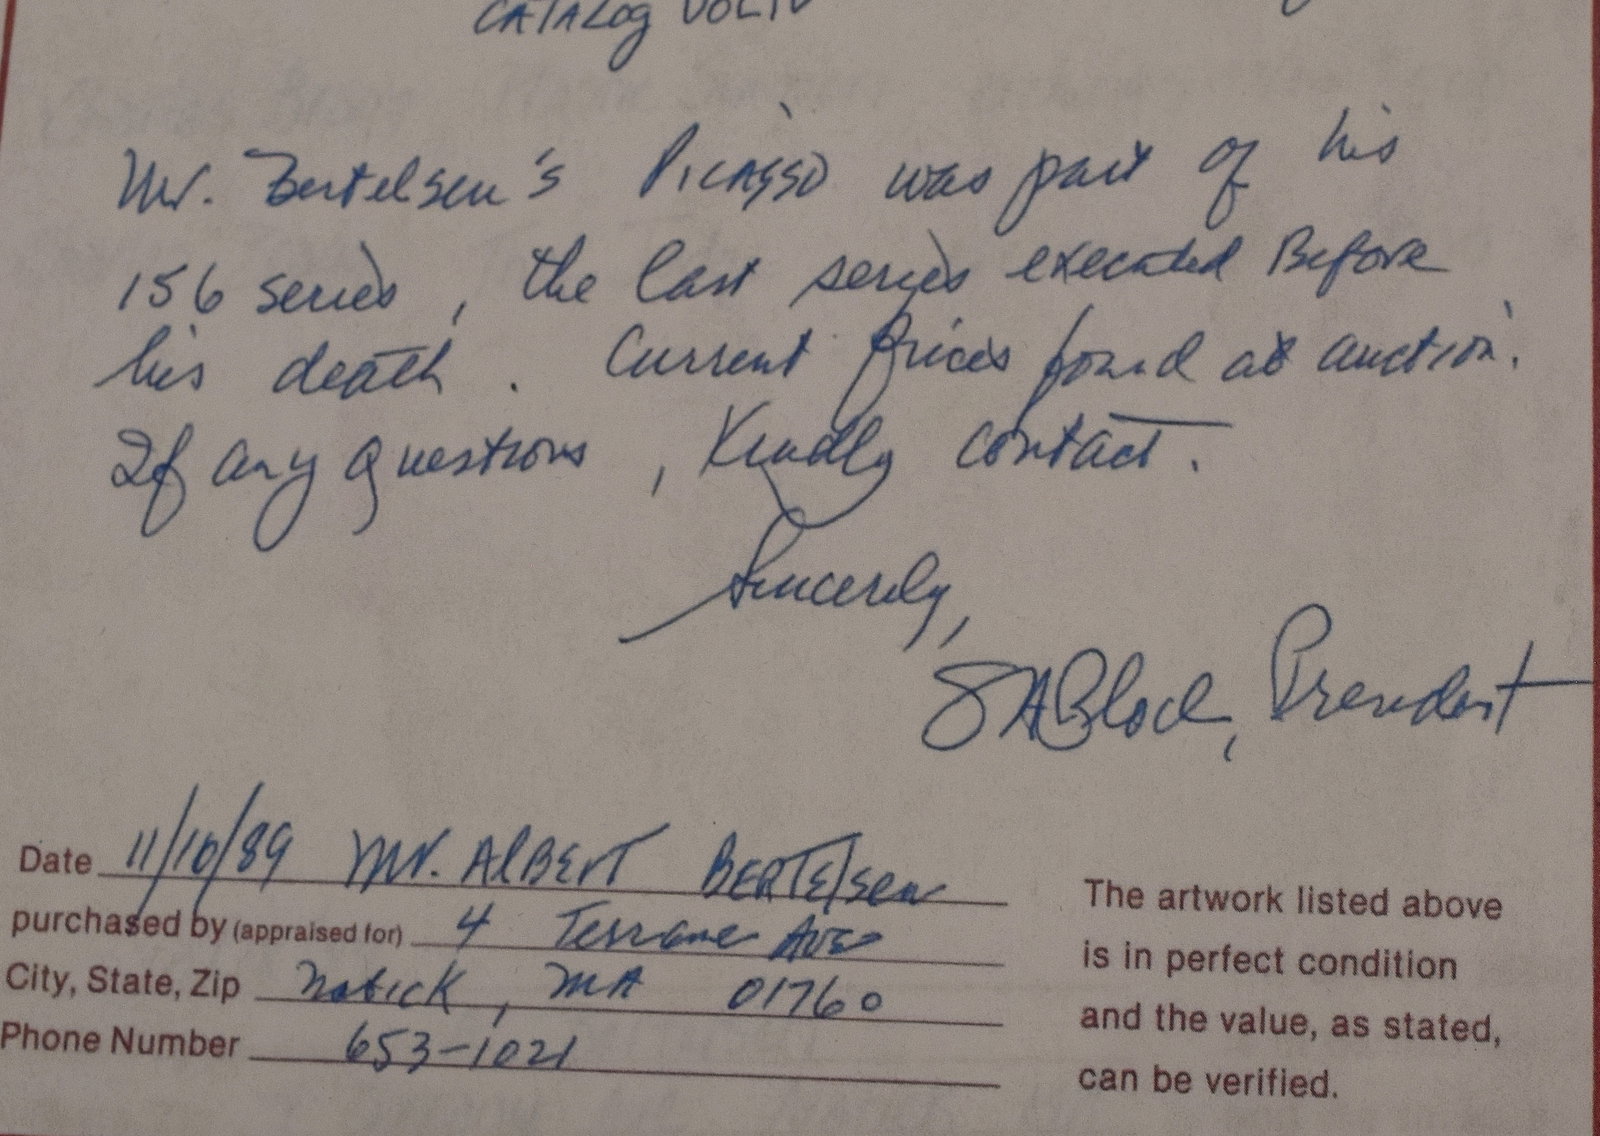 CATALOG VOL IV
Mr. Bertelsen's Picasso was part of his
156 series, the last series executed Before
his death. Current prices found at auction.
If any questions, Kindly contact.
Sincerely,
SABloch, President
Date 11/10/89 Mr. Albert Bertelsen
purchased by (appraised for) 4 Terrane Ave
City, State, Zip Natick, MA 01760
Phone Number 653-1021
The artwork listed above
is in perfect condition
and the value, as stated,
can be verified.